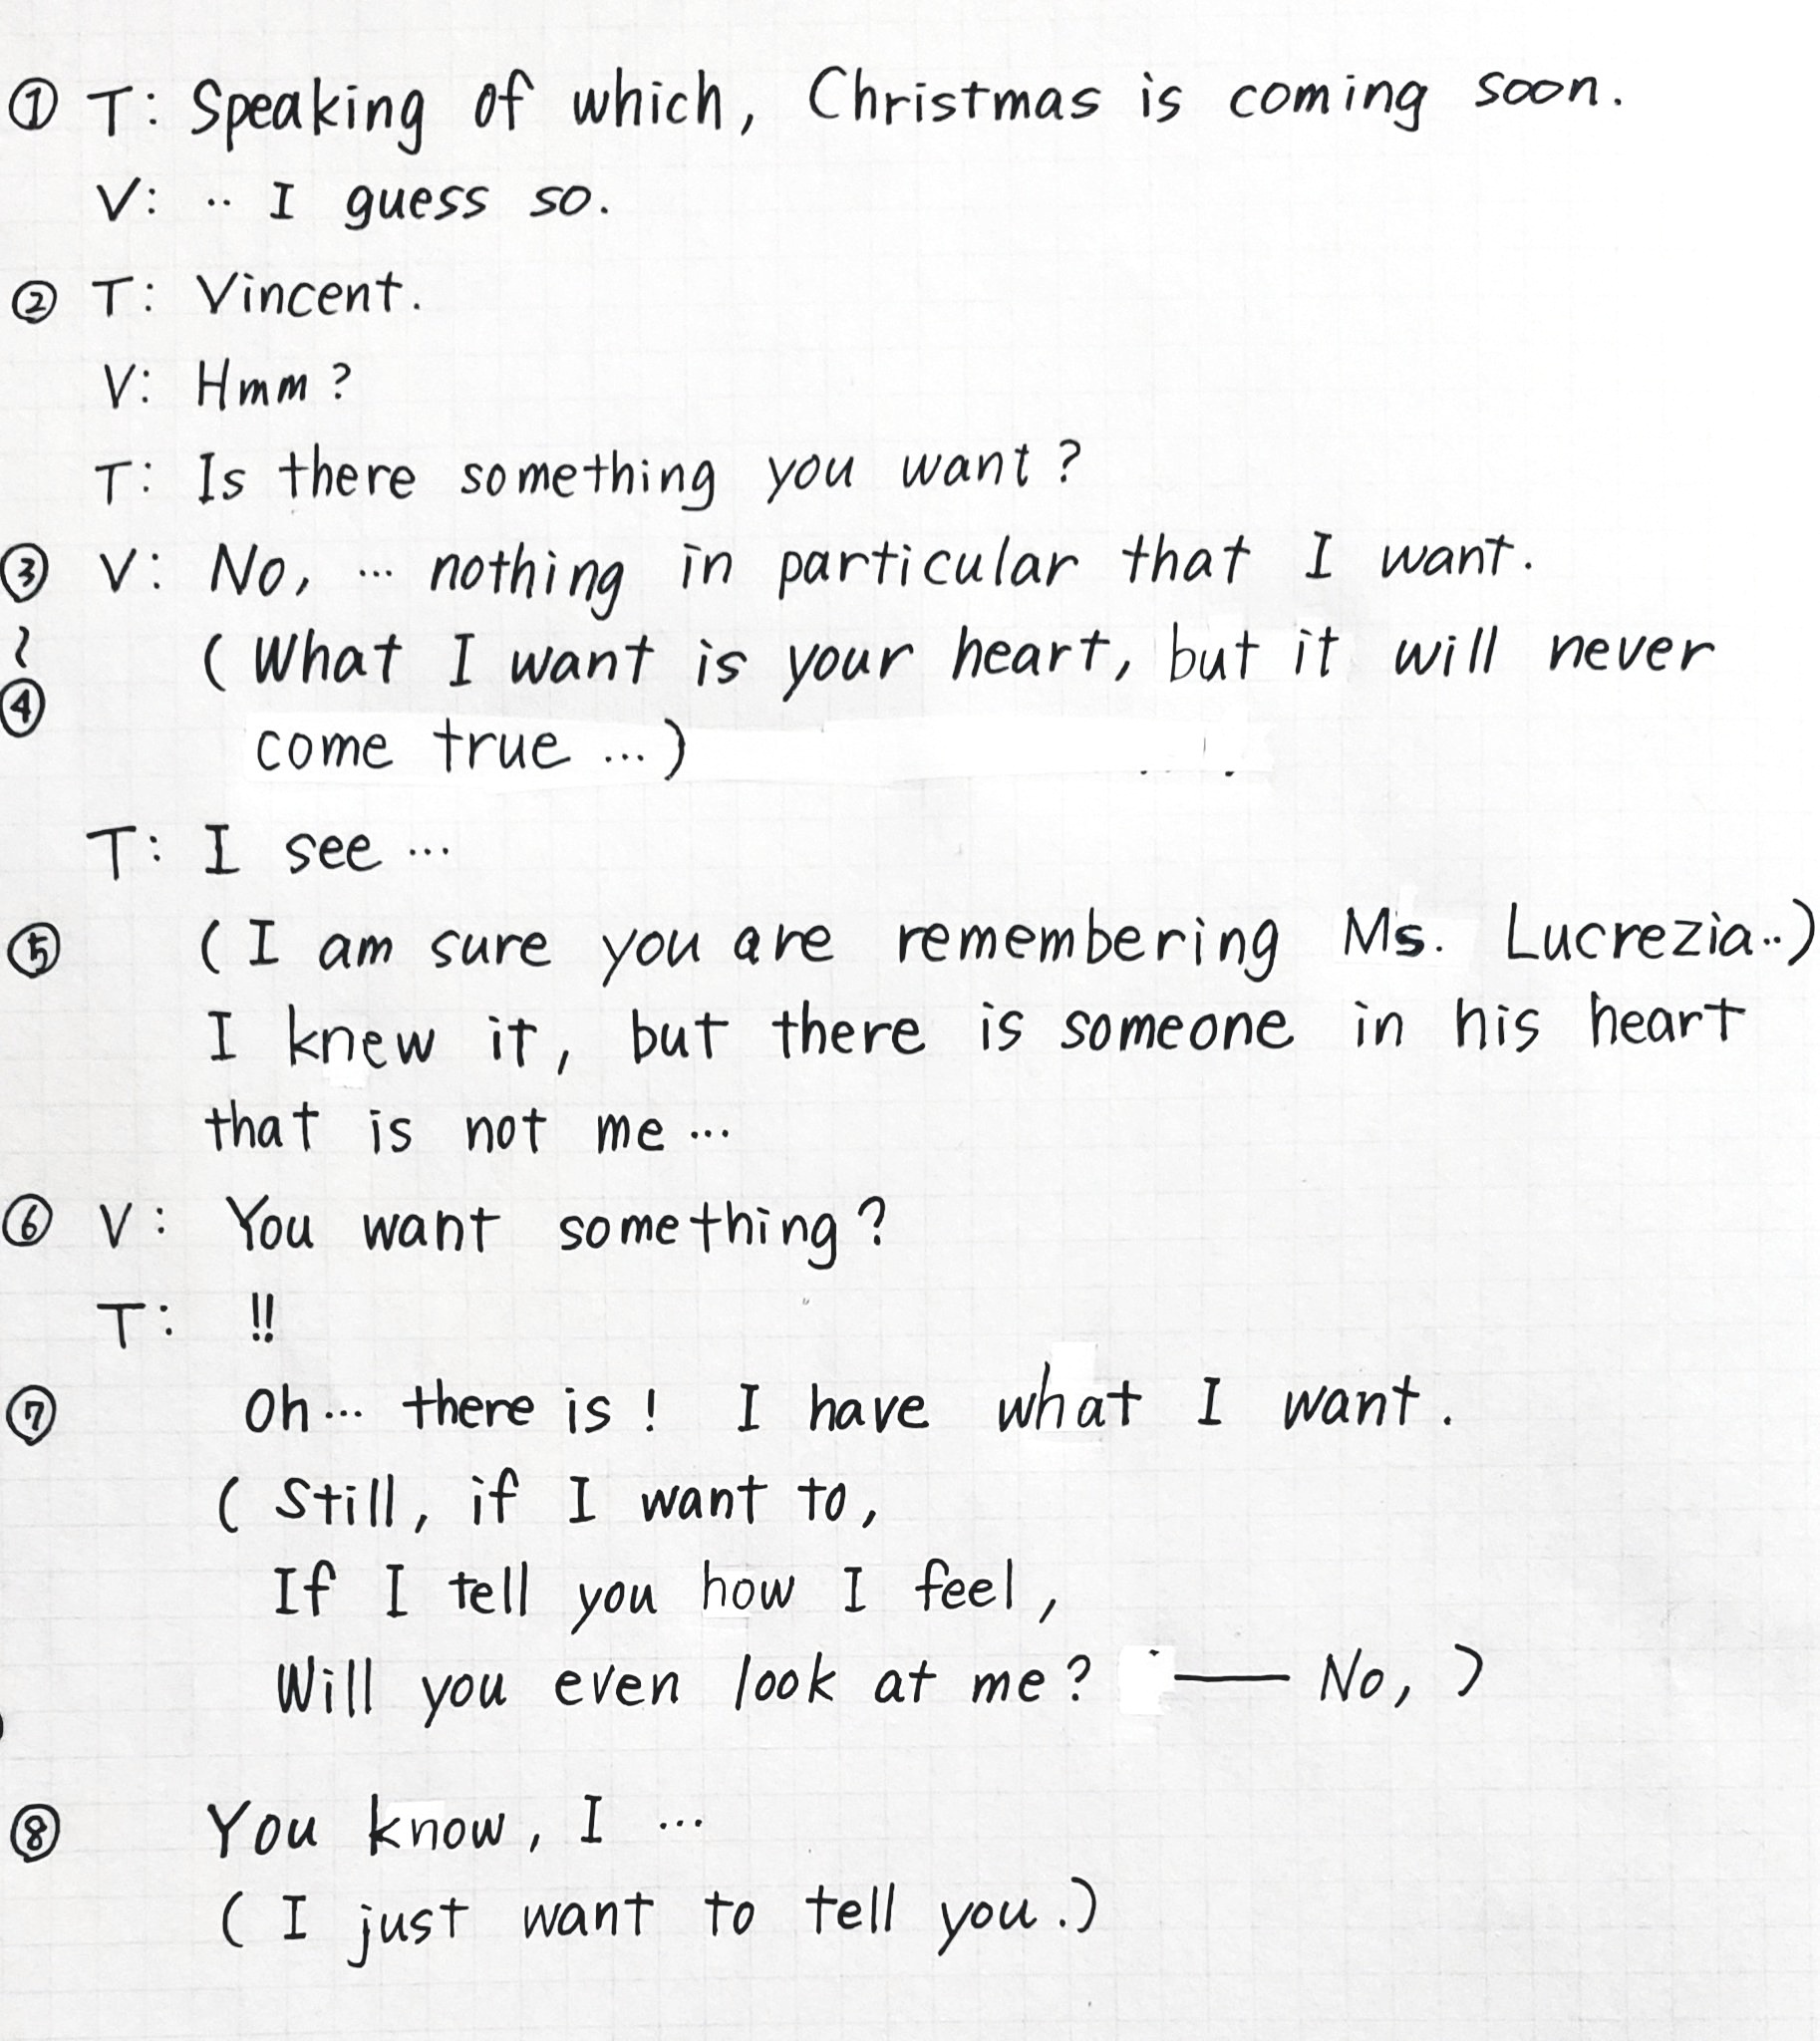 ① T: Speaking of which, Christmas is coming soon.
V: ‥ I guess so.
② T: Vincent.
V: Hmm?
T: Is there something you want?
③ V: No, … nothing in particular that I want.
~ (What I want is your heart, but it will never
④ come true …)
T: I see …
⑤ (I am sure you are remembering Ms. Lucrezia‥)
I knew it, but there is someone in his heart
that is not me …
⑥ V: You want something?
T: !!
⑦ Oh … there is! I have what I want.
(Still, if I want to,
If I tell you how I feel,
Will you even look at me? — No,)
⑧ You know, I …
(I just want to tell you.)